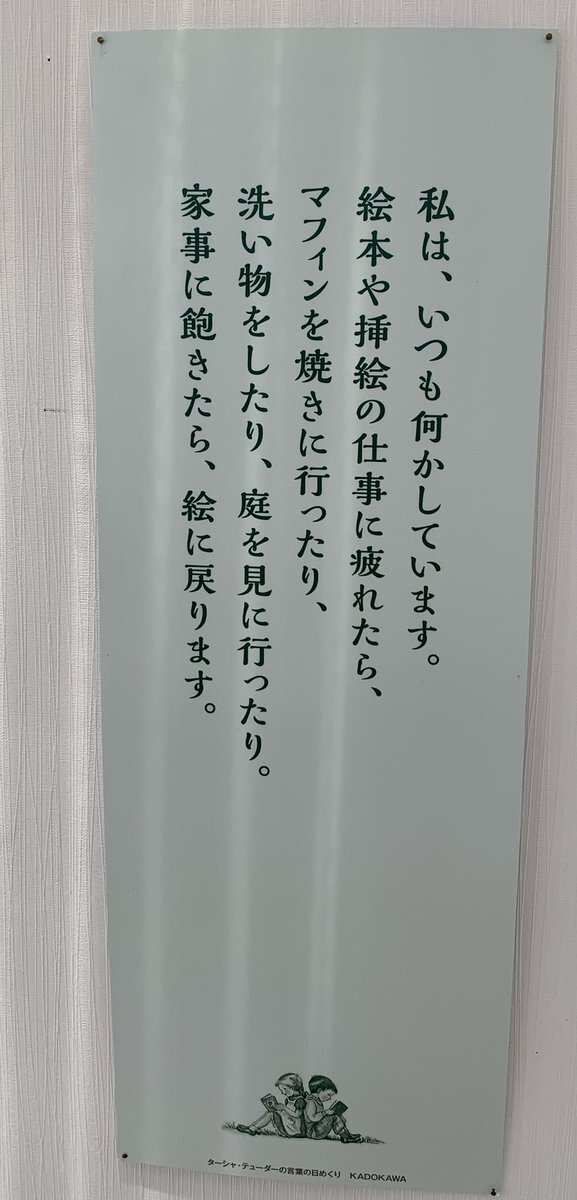 私は、いつも何かしています。
絵本や挿絵の仕事に疲れたら、
マフィンを焼きに行ったり、
洗い物をしたり、庭を見に行ったり。
家事に飽きたら、絵に戻ります。
ターシャ・テューダーの言葉の日めくり KADOKAWA